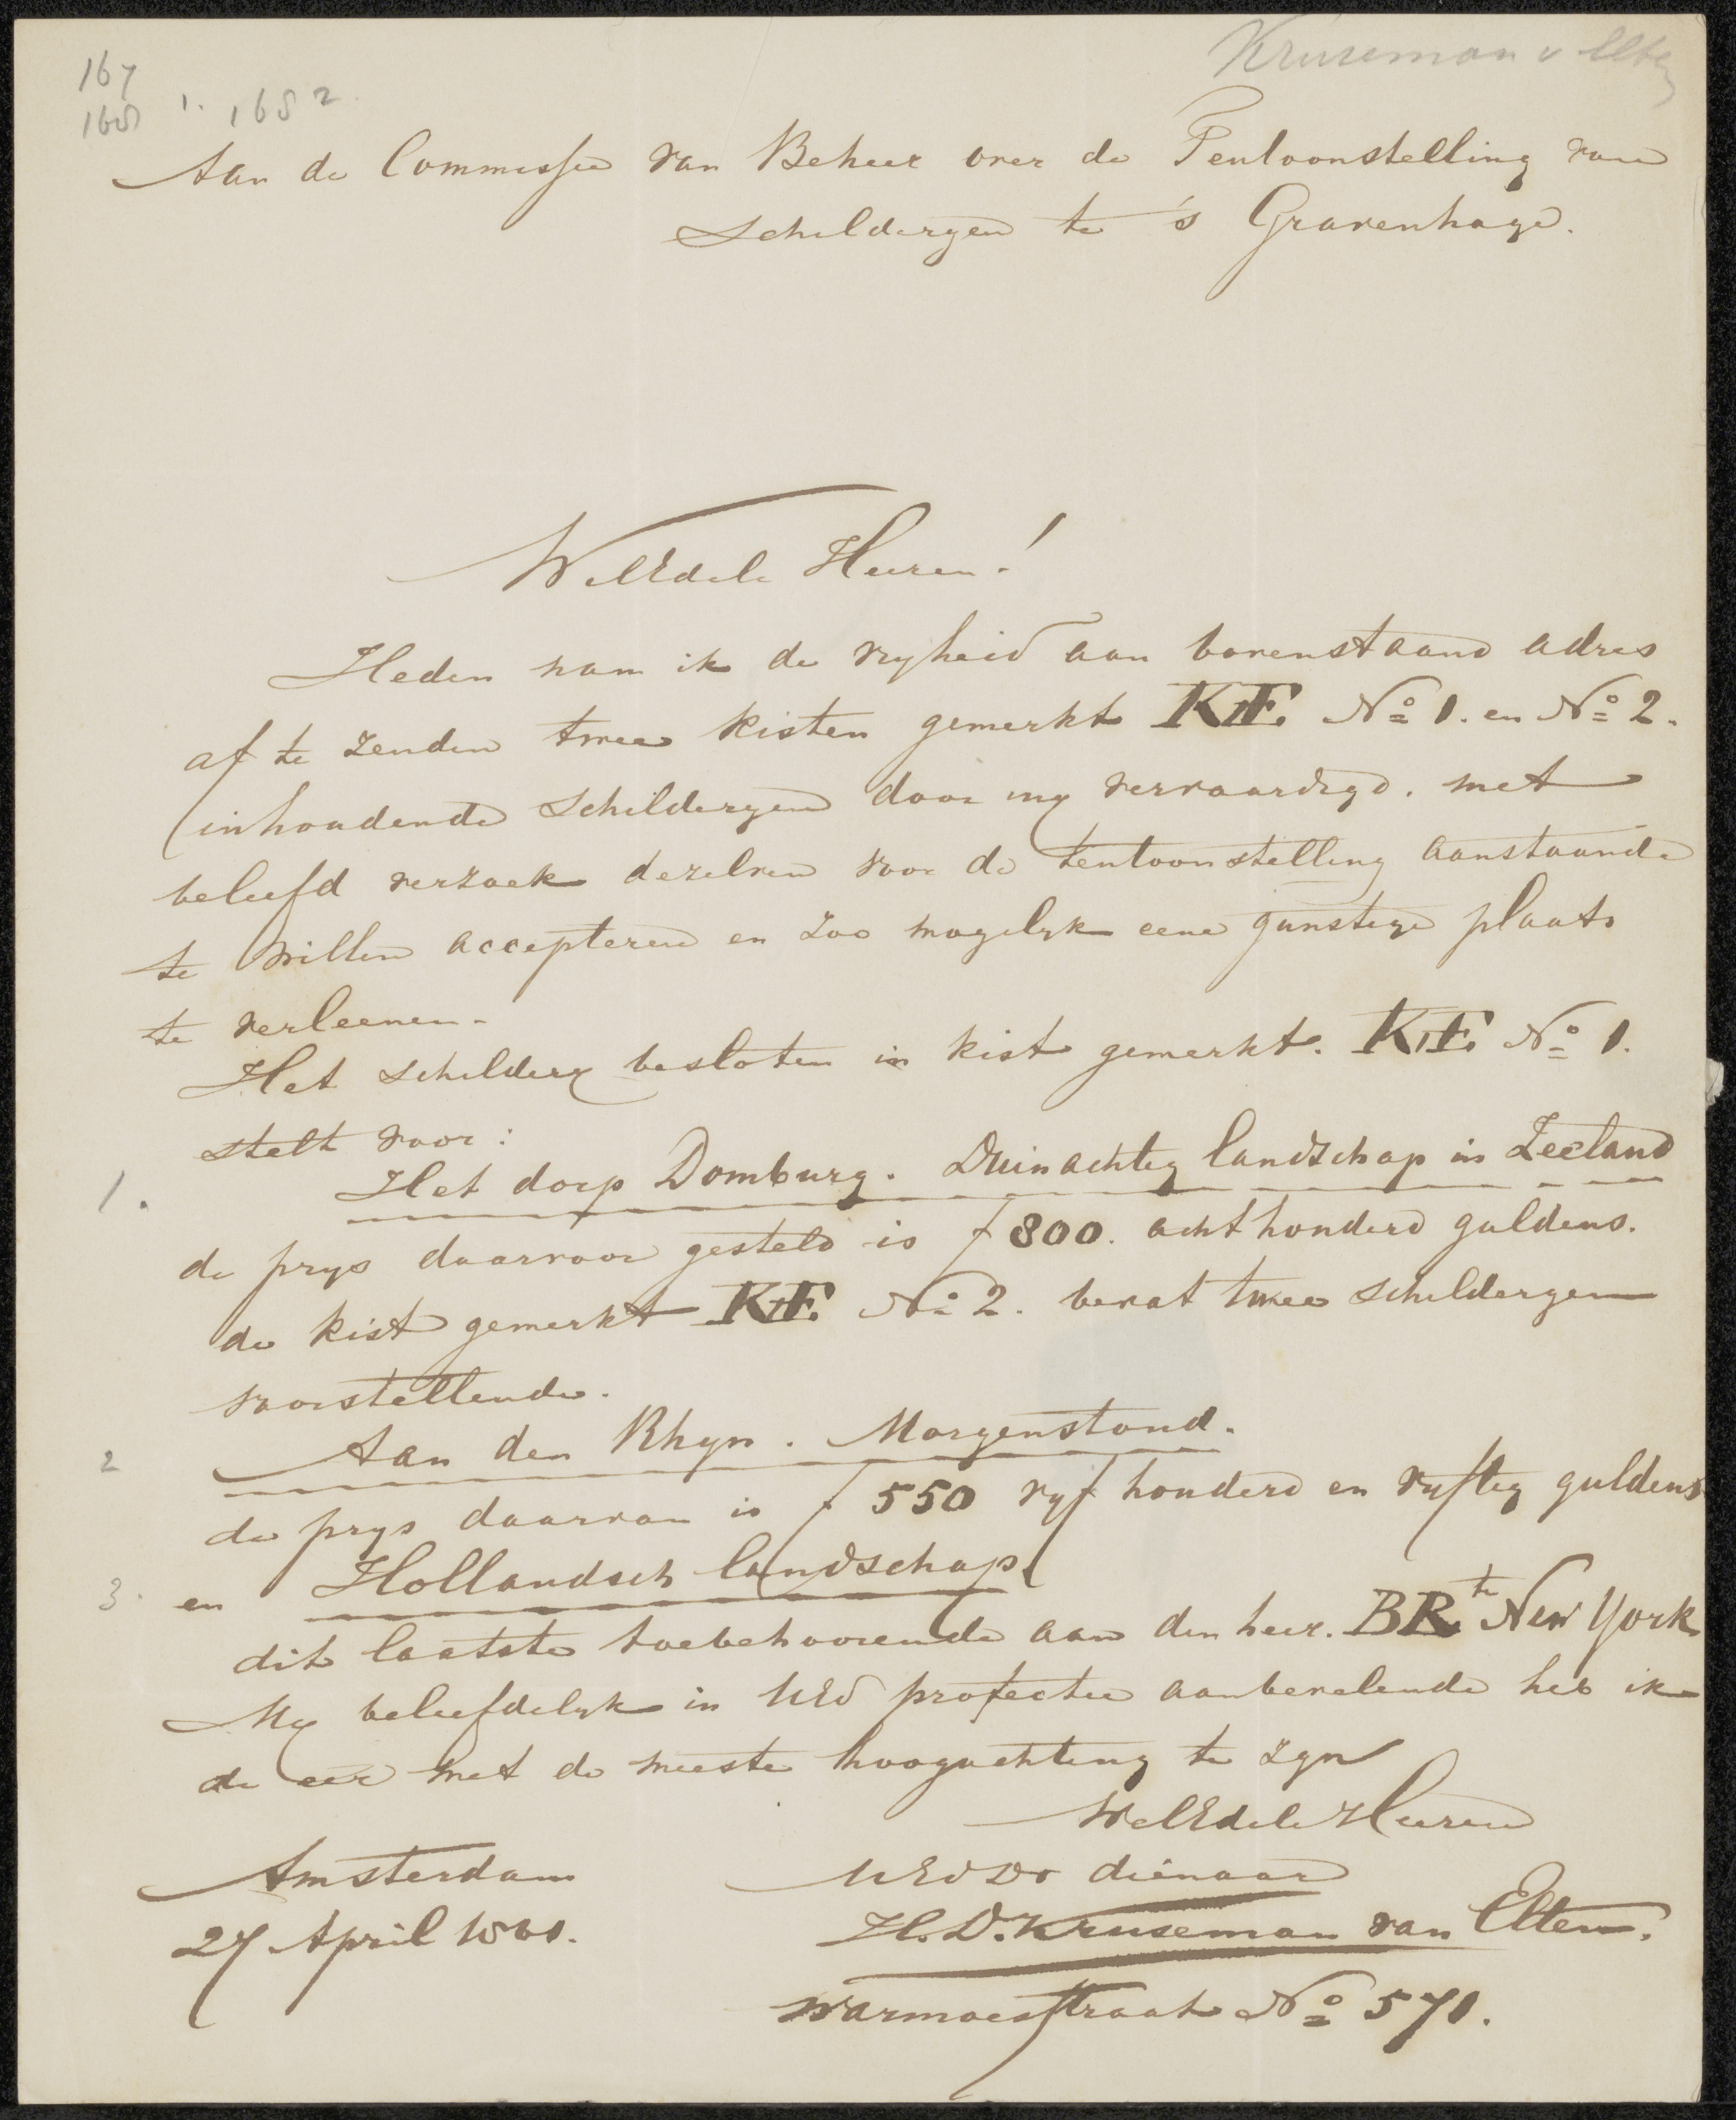 Kruseman v Elten
167
168 1. 168 2.
Aan de Commissie van Beheer over de Tentoonstelling van
Schilderyen te 's Gravenhage.
WelEdele Heeren!
Heden nam ik de vryheid aan bovenstaand adres
af te zenden twee kisten gemerkt KvE. No 1. en No 2.
inhoudende schilderyen door my vervaardigd. met
beleefd verzoek dezelven voor de tentoonstelling aanstaande
te willen accepteren en zoo mogelyk eene gunstige plaats
te verleenen.
Het schildery besloten in kist gemerkt. KvE. No 1.
stelt voor:
1. Het dorp Domburg. Duinachtig landschap in Zeeland
de prys daarvoor gesteld is f 800. acht honderd guldens.
de kist gemerkt KvE. No 2. bevat twee schilderyen
voorstellende.
2 Aan den Rhyn. Morgenstond.
de prys daarvan is f 550 vyf honderd en vyftig guldens
3. en Hollandsch landschap.
dit laatste toebehoorende aan den heer. BR. te New York
My beleefdelyk in UEd protectie aanbevelende heb ik
de eer met de meeste hoogachting te zyn
WelEdele Heeren
Amsterdam UEd Dr dienaar
27 April 1861. H. D. Kruseman van Elten.
Warmoesstraat No 571.